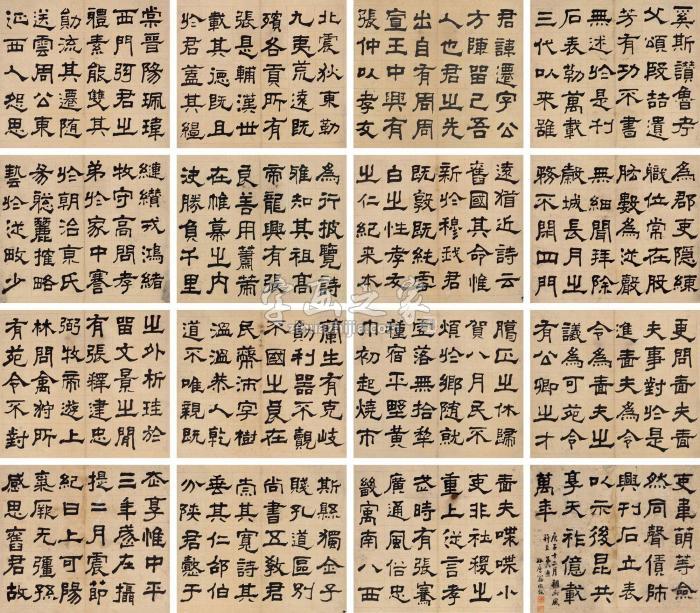 奚斯讚魯考
父頌既喆遺
芳有功不書
無述於是刊
石表勒萬載
三代以來雖
君諱遷字公
方陳留己吾
人也君之先
出自有周周
宣王中興有
張仲以孝友
北震狄東勤
九夷荒遠既
殯各貢所有
張是輔漢世
載其德既且
於君蓋其繵
棠晉陽珮瑋
西門君之
體素能雙其
勛流其遷隨
送雲周公東
征西人怨思
為郡吏隱練
職位常在股
肱數為從聲
無細聞拜除
穀城長月之
務不閉四門
遠猶近詩云
舊國其命惟
新於穆我君
既敦既純雪
白之性孝友
之仁紀來本
為行披覽詩
雅知其祖高
帝龍興有張
良善用籌策
在帷幕之內
決勝負千里
縺纘戎鴻緒
牧守高問孝
弟於家中謇
於朝治京氏
易聰麗權略
藝於從畋少
更問嗇夫嗇
夫事對於是
進嗇夫為令
令為嗇夫之
議為可苑令
有公卿之才
臘正之休歸
賀八月民不
煩於鄉隨就
虛落無拾犁
種宿平野黃
巾初起燒市
蘭生有克岐
勛利器不覿
不國之良在
民蔽沛字樹
溫溫恭人乾
道不唯親既
之外析珪於
留文景之間
有張釋建忠
弼牧帝遊上
林問禽狩所
有苑令不對
吏韋萌等僉
然同聲賃師
興刊石立表
以示後昆共
享天祚億載
萬年
嗇夫喋喋小
吏非社稷之
重上從言孝
武時有張騫
廣通風俗
畿寓南八西
斯縣獨全子
賤孔道區別
尚書五教君
崇其寬詩其
垂其仁邵伯
分陝君懿于
享惟中平
三年歲在攝
提二月震節
紀日上可陽
氣厥无彊孫
感思舊君故